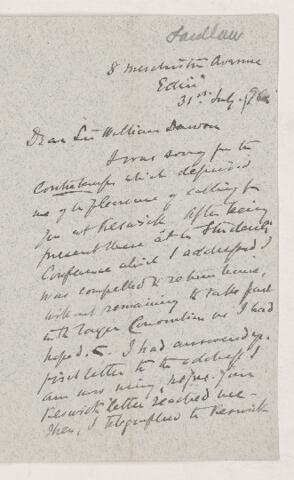 Laidlaw
8 Merchiston Avenue
Edinr
31st July
Dear Sir William Dawson
I was sorry for the
contretemps which deprived
me of the pleasure of calling for
you at Keswick. After being
present there at the Students
Conference which I addressed I
was compelled to return home,
without remaining to take part
in the larger Convention as I had
hoped to. I had answered yr.
first letter to the address I
am now using, before your
Keswick letter reached me.
Then, I telegraphed to Keswick